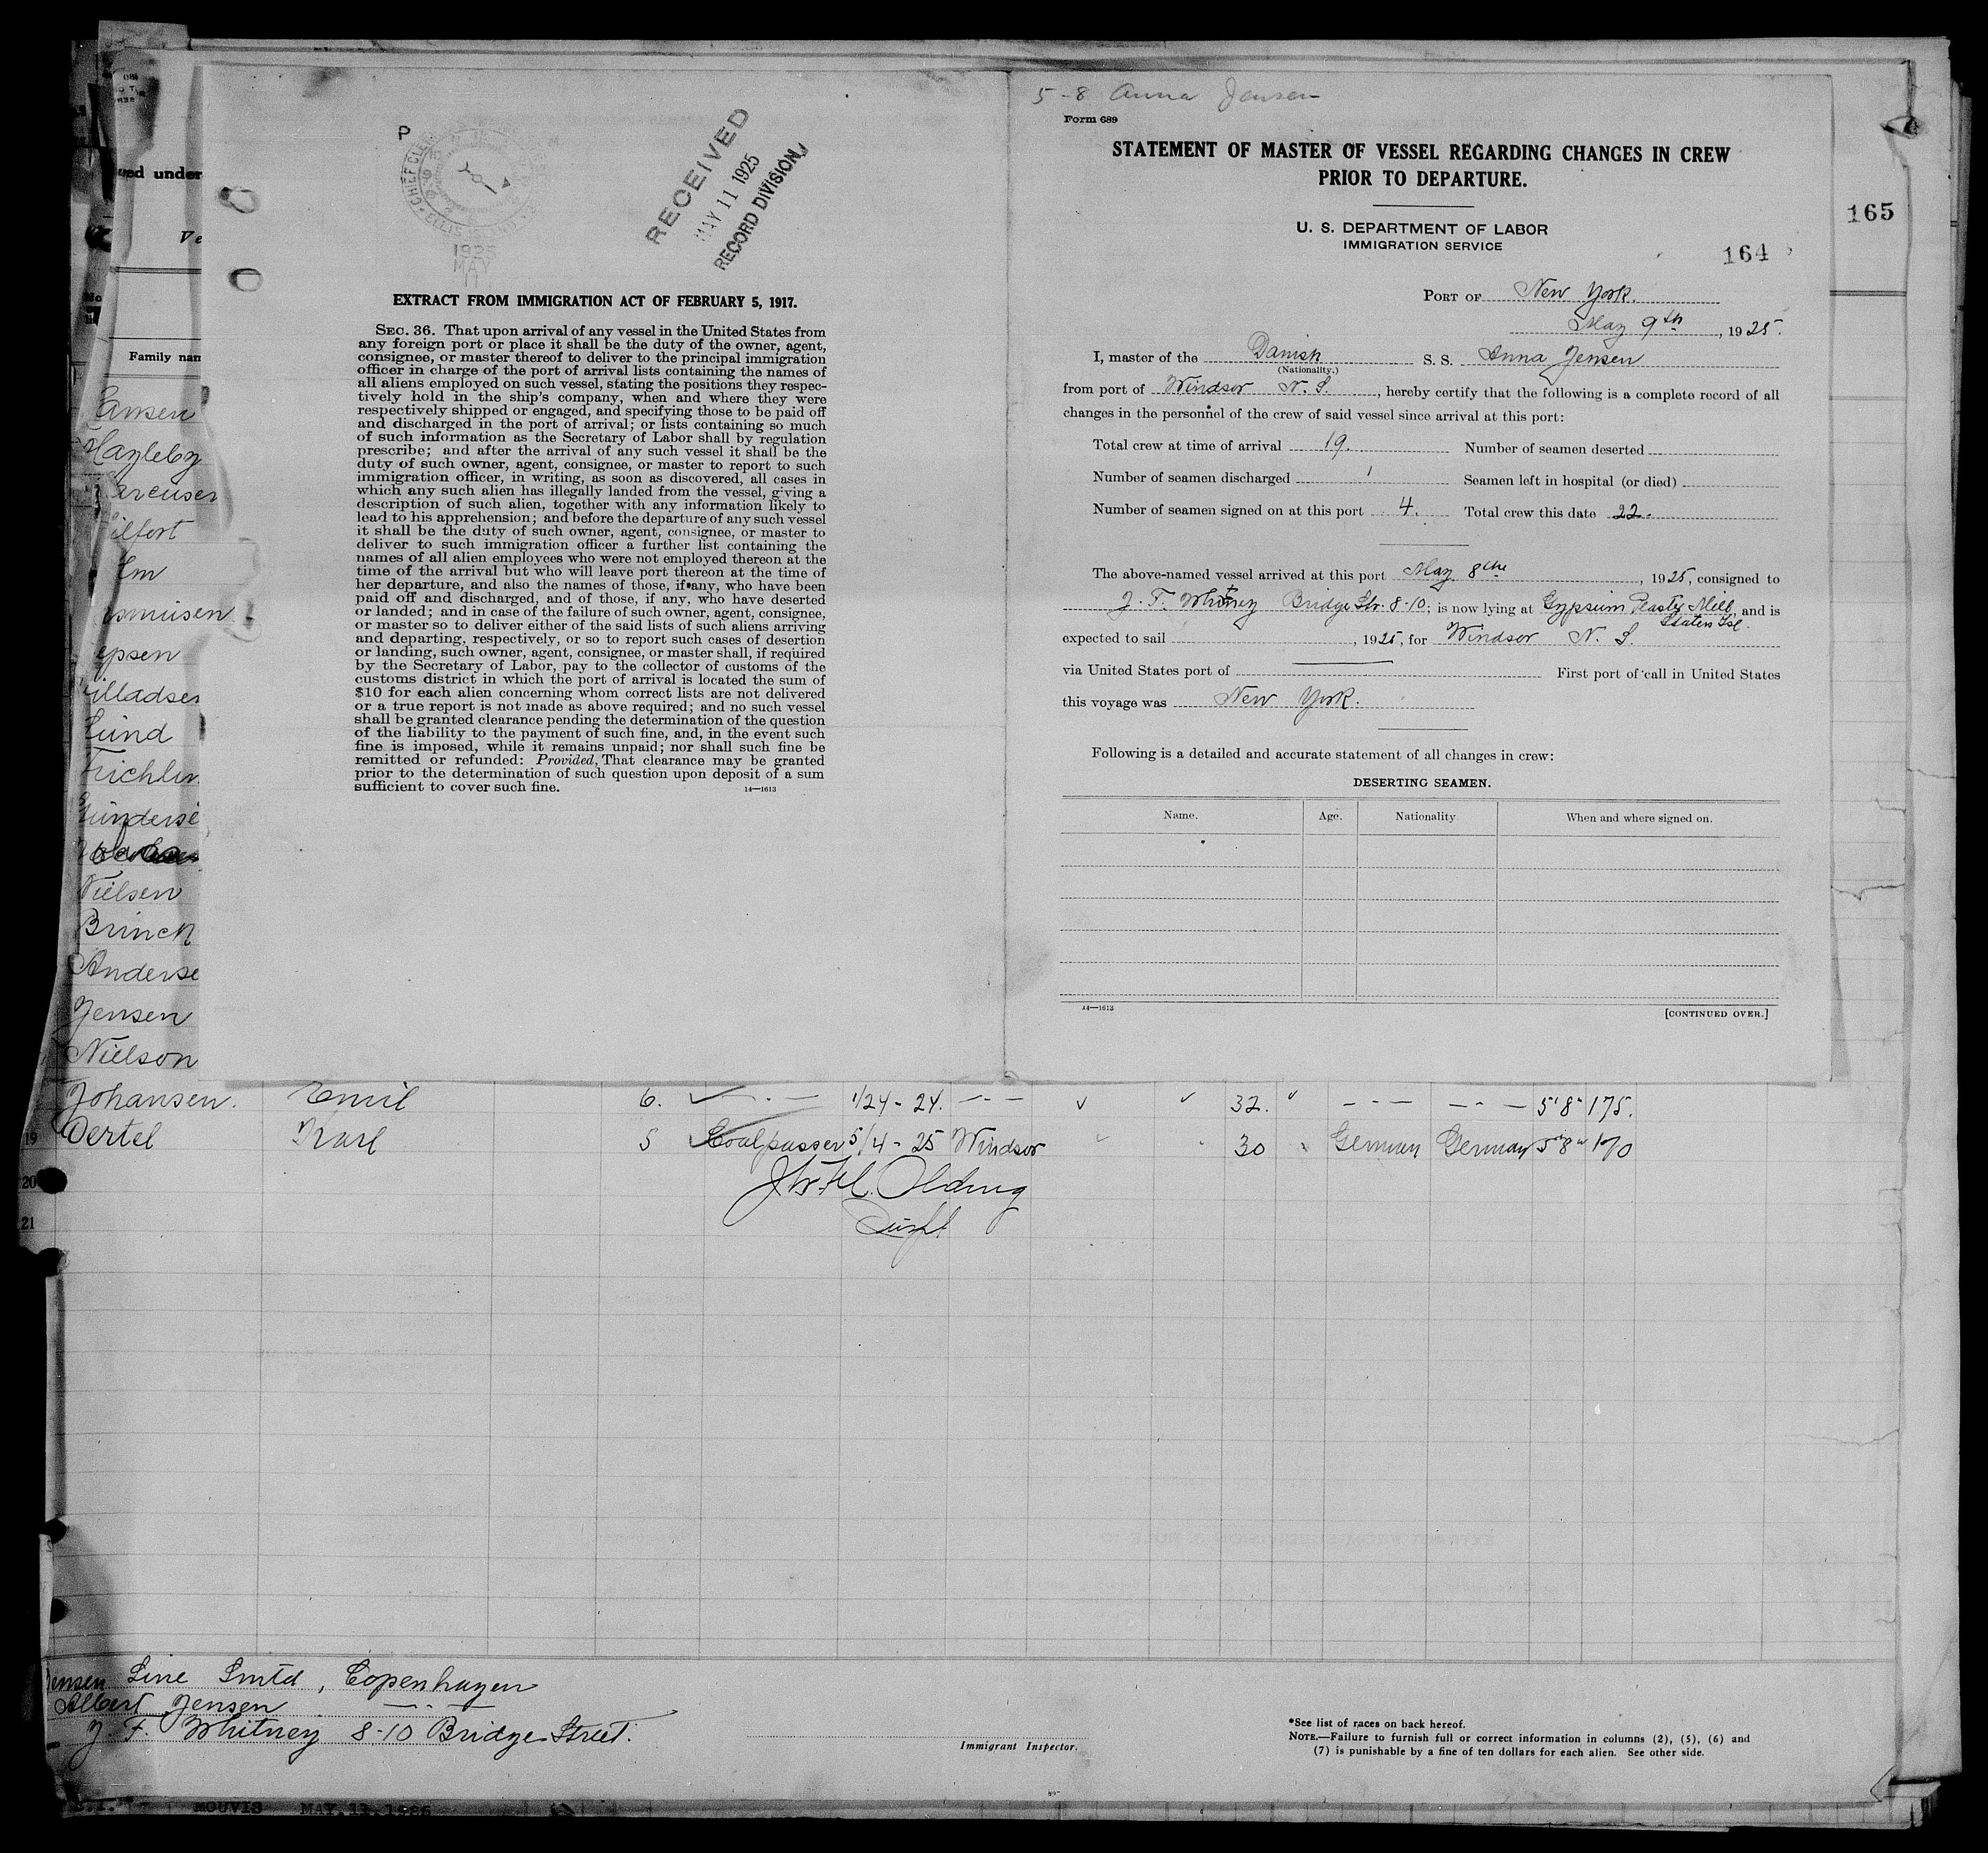 5-8 Anna Jensen
Form 689
STATEMENT OF MASTER OF VESSEL REGARDING CHANGES IN CREW
PRIOR TO DEPARTURE.
U. S. DEPARTMENT OF LABOR
IMMIGRATION SERVICE
165
164
PORT OF New York.
May 9th, 1925.
I, master of the Danish S. S. Anna Jensen
(Nationality.)
from port of Windsor N. S., hereby certify that the following is a complete record of all
changes in the personnel of the crew of said vessel since arrival at this port:
Total crew at time of arrival 19. Number of seamen deserted
Number of seamen discharged 1 Seamen left in hospital (or died)
Number of seamen signed on at this port 4. Total crew this date 22.
The above-named vessel arrived at this port May 8the, 1925, consigned to
J. F. Whitney Bridge Str. 8-10; is now lying at Gypsum Plaster Mill, and is
Staten Isl.
expected to sail , 1925, for Windsor N. S.
via United States port of First port of call in United States
this voyage was New York.
Following is a detailed and accurate statement of all changes in crew:
DESERTING SEAMEN.
Name. Age. Nationality When and where signed on.
14—1613
[CONTINUED OVER.]
P
CHIEF CLERK
ELLIS ISLAND
1925
MAY
11
RECEIVED
MAY 11 1925
RECORD DIVISION
EXTRACT FROM IMMIGRATION ACT OF FEBRUARY 5, 1917.
SEC. 36. That upon arrival of any vessel in the United States from
any foreign port or place it shall be the duty of the owner, agent,
consignee, or master thereof to deliver to the principal immigration
officer in charge of the port of arrival lists containing the names of
all aliens employed on such vessel, stating the positions they respec-
tively hold in the ship's company, when and where they were
respectively shipped or engaged, and specifying those to be paid off
and discharged in the port of arrival; or lists containing so much
of such information as the Secretary of Labor shall by regulation
prescribe; and after the arrival of any such vessel it shall be the
duty of such owner, agent, consignee, or master to report to such
immigration officer, in writing, as soon as discovered, all cases in
which any such alien has illegally landed from the vessel, giving a
description of such alien, together with any information likely to
lead to his apprehension; and before the departure of any such vessel
it shall be the duty of such owner, agent, consignee, or master to
deliver to such immigration officer a further list containing the
names of all alien employees who were not employed thereon at the
time of the arrival but who will leave port thereon at the time of
her departure, and also the names of those, if any, who have been
paid off and discharged, and of those, if any, who have deserted
or landed; and in case of the failure of such owner, agent, consignee,
or master so to deliver either of the said lists of such aliens arriving
and departing, respectively, or so to report such cases of desertion
or landing, such owner, agent, consignee, or master shall, if required
by the Secretary of Labor, pay to the collector of customs of the
customs district in which the port of arrival is located the sum of
$10 for each alien concerning whom correct lists are not delivered
or a true report is not made as above required; and no such vessel
shall be granted clearance pending the determination of the question
of the liability to the payment of such fine, and, in the event such
fine is imposed, while it remains unpaid; nor shall such fine be
remitted or refunded: Provided, That clearance may be granted
prior to the determination of such question upon deposit of a sum
sufficient to cover such fine.
14—1613
ued under
Ve
No
Family nam
Hayleby
Lund
Nielsen
Brinck
Anderse
Jensen
Nielson
Johansen. Emil 6. 1/24-24. 32. 5'8" 175.
19 Oertel Karl 5 Coalpasser 5/4-25 Windsor 30 German Germany 5'8" 170
20
21
Jensen Line Lmtd, Copenhagen
Albert Jensen
J. F. Whitney 8-10 Bridge Street.
Immigrant Inspector.
*See list of races on back hereof.
NOTE.—Failure to furnish full or correct information in columns (2), (5), (6) and
(7) is punishable by a fine of ten dollars for each alien. See other side.